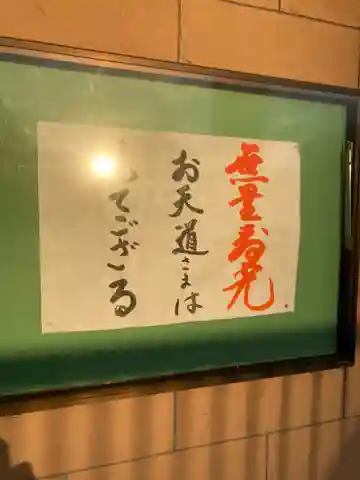 無量寿光
お天道さまは
てござる